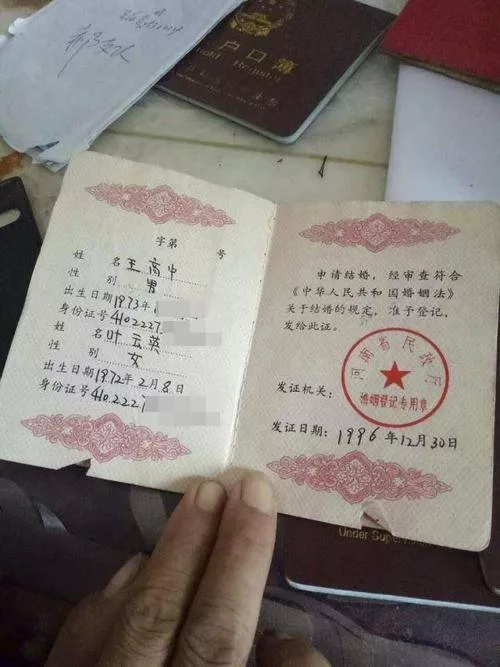 户口簿
Household Register
字第 号
姓 名 王高中
性 别 男
出生日期 1973年
身份证号 4102227
姓 名 叶云英
性 别 女
出生日期 1972年2月8日
身份证号 4102227
申请结婚,经审查符合
《中华人民共和国婚姻法》
关于结婚的规定,准予登记,
发给此证。
河南省民政厅
婚姻登记专用章
发证机关:
发证日期: 1996年12月30日
Under Super